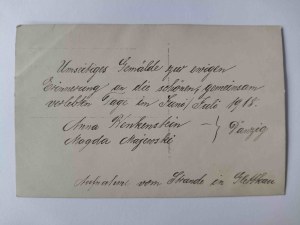 Umseitiges Gemälde zur ewigen
Erinnerung an die schönen, gemeinsam
verlebten Tage im Juni/Juli 1918.
Anna Renkenstein
Magda Majewski } Danzig
Aufnahme vom Strande in Glettkau